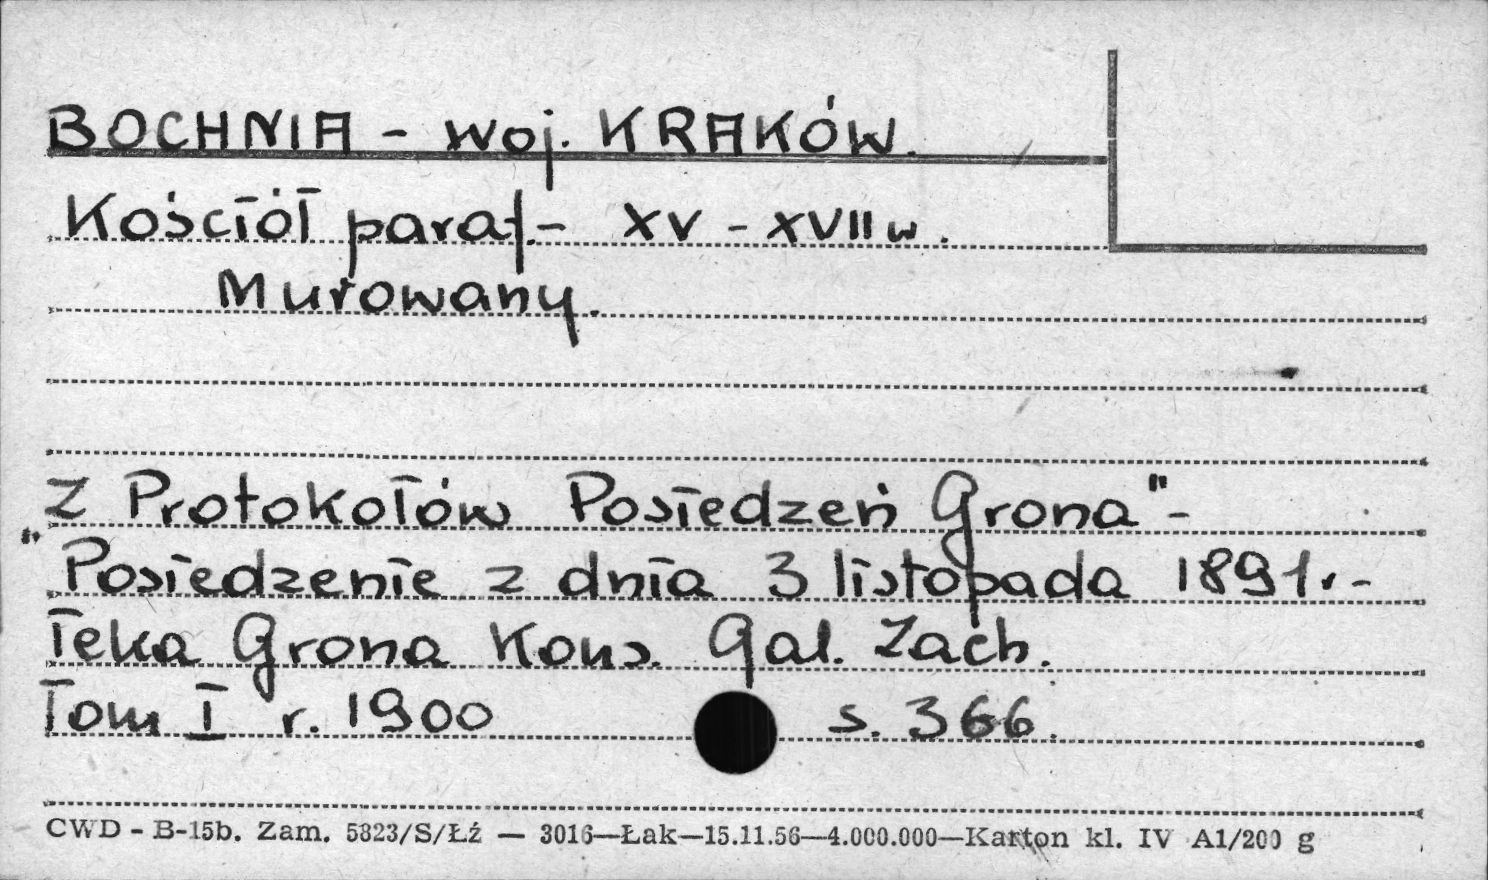 BOCHNIA - woj. KRAKÓW.
Kościół paraf.- XV - XVII w.
Murowany.
Z Protokołów Posiedzeń Grona"-
"Posiedzenie z dnia 3 listopada 1891.-
Teka Grona Kons. Gal. Zach.
Tom I r. 1900 s. 366.
CWD - B-15b. Zam. 5823/S/Łź — 3016—Łak—15.11.56—4.000.000—Karton kl. IV A1/200 g